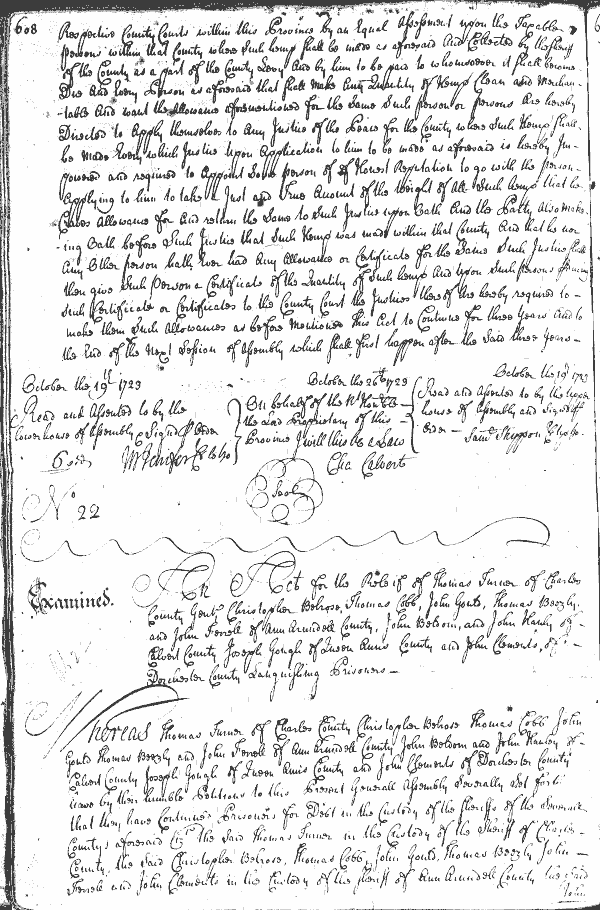 608
Respective County Courts within this Province by an Equal Assessment upon the Taxable
persons within that County where Such hemp shall be made as aforesaid And Collected by the sheriff
of the County as a part of the County Levy And by him to be paid to whomsoever it shall become
Due And Every Person as aforesaid that shall make Any Quantity of Hemp Clean and Merchan-
table And want the Allowance aforementioned for the Same Such person or persons Are hereby
Directed to Apply themselves to Any Justice of the Peace for the County where Such Hemp shall
be made Every which Justice upon Application to him to be made as aforesaid is hereby Im-
powered and required to Appoint Some person of Honest Reputation to go with the person
Applying to him to take a Just and True Amount of the Weight of All Such hemp that he
Craves Allowance for And return the Same to Such Justice upon Oath And the Party Also make-
ing Oath before Such Justice that Such Hemp was made within that County And that he nor
Any Other person hath Ever had Any Allowance or Certificate for the Same Such Justice shall
then give Such Person a Certificate of the Quantity of Such hemp And upon Such persons
Such Certificate or Certificates to the County Court the Justices thereof Are hereby required to
make them Such Allowances as before Mentioned This Act to Continue for three Years And to
the End of the Next Session of Assembly which shall first happen after the Said three Years
October the 19th 1723
Read and Assented to by the
Lower house of Assembly & Signed p Order
October the 26th 1723
On behalf of the Rt Honble
the Lord Proprietary of this
Province I will this be a Law
Cha Calvert
October the 19th 1723
Read and Assented to by the Upper
house of Assembly and Signed p
Order
Saml Skippon
Seal
No 22
Examined.
An Act for the Relief of Thomas Turner of Charles
County Gentn Christopher Belrose, Thomas Cobb, John Gouts, Thomas Beezly,
and John Ferrell of Ann Arundell County, John Belson, and John Hanley of
Calvert County Joseph Gough of Queen Anns County and John Clements, of
Dorchester County Languishing Prisoners
Whereas Thomas Turner of Charles County Christopher Belrose Thomas Cobb John
Gouts Thomas Beezly and John Ferrell of Ann Arundell County John Belson and John Hanley of
Calvert County Joseph Gough of Queen Anns County and John Clements of Dorchester County
have by their humble Petitions to this Present Generall Assembly Severally Set forth
that they have Continued Prisoners for Debt in the Custody of the Sheriffs of the
Countys aforesaid the Said Thomas Turner in the Custody of the Sheriff of Charles
County, the Said Christopher Belrose, Thomas Cobb, John Gouts, Thomas Beezly John
Ferrell and John Clements in the Custody of the Sheriff of Ann Arundell County the Said
John